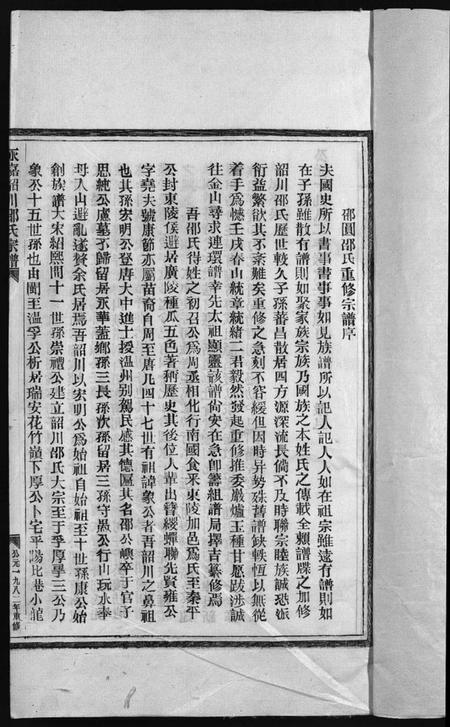 邵園邵氏重修宗譜序
夫國史所以書事書事事如見族譜所以記人記人人如在祖宗雖遠有譜則如
在子孫雖散有譜則如聚家族宗族乃國族之本姓氏之傳載全賴譜牒之加修
韶川邵氏歷世較久子孫蕃昌散居四方源深流長倘不及時聯宗睦族誠恐派
衍益繁欲其不紊難矣重修之急刻不容緩但因時异勢殊舊譜鈌軼恆以無從
着手爲憾壬戌春山統章統緒二君毅然發起重修推委巖爐玉種甘愿跋涉誠
往金山尋求連環譜幸先太祖顯靈該譜尚安在急卽籌組譜局擇吉纂修焉
吾邵氏得姓之初召公爲周丞相化行南國食釆東陵加邑爲邵氏至秦平
公封東陵侯避居廣陵種瓜五色著稱歷史其後位人輩出簪纓蟬聯先賢雍公
字堯夫號康節亦屬苗裔自周至唐凡四十七世有祖諱象公者吾韶川之鼻祖
也其孫宏明公登唐大中進士授温州别駕民感其德區其名邵公嶼卒于官子
思純公慮墓不歸留居永華蓋鄉孫三長孫次孫留居三孫守愚公行山玩水奉
母入山避亂遂贅余氏居焉吾韶川以宏明公爲始祖自始祖至十世孫康公始
創族譜大宋紹熙間十一世孫崇禮公建立韶川邵氏大宗至于孚厚學三公乃
象公十五世孫也由閩至温孚公析居瑞安花竹嶺下厚公卜宅平陽比巷小龍
永嘉韶川邵氏宗譜
公元一九八二年東修